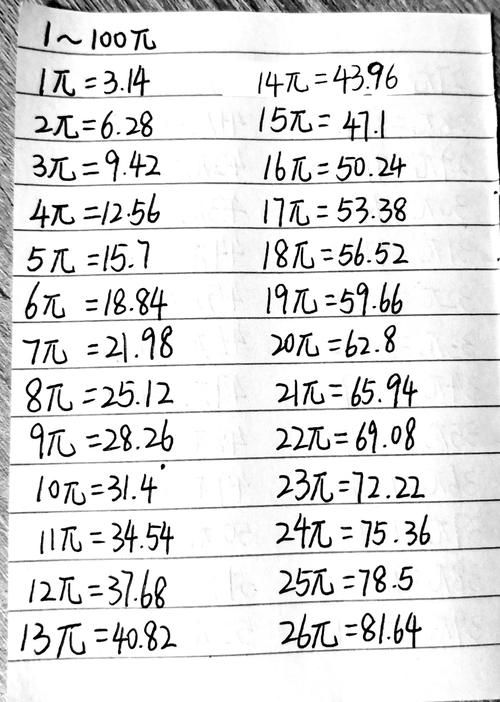 1~100π
1π=3.14
2π=6.28
3π=9.42
4π=12.56
5π=15.7
6π=18.84
7π=21.98
8π=25.12
9π=28.26
10π=31.4
11π=34.54
12π=37.68
13π=40.82
14π=43.96
15π=47.1
16π=50.24
17π=53.38
18π=56.52
19π=59.66
20π=62.8
21π=65.94
22π=69.08
23π=72.22
24π=75.36
25π=78.5
26π=81.64